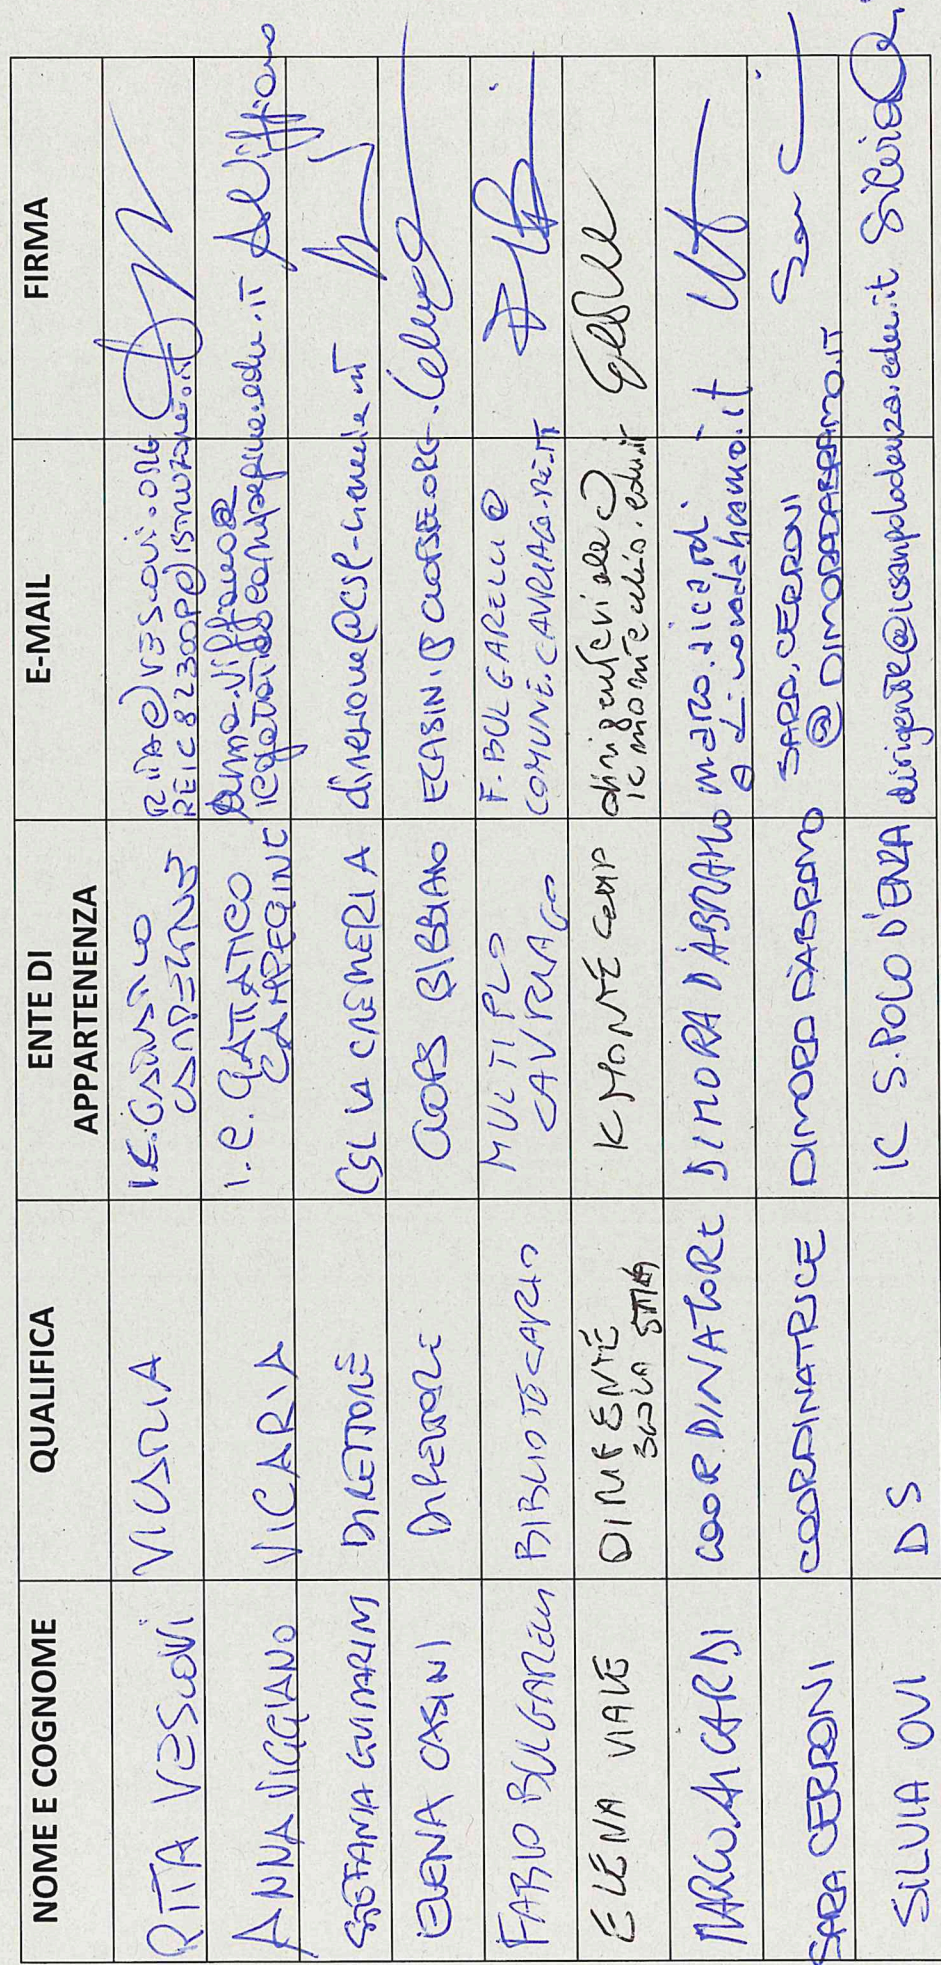 NOME E COGNOME QUALIFICA ENTE DI APPARTENENZA E-MAIL FIRMA
RITA VESCOVI VICARIA I.C. GATTATICO CAMPEGINE RITA@VESCOVI.ORG
REIC82300P@ISTRUZIONE.IT
ANNA VIGGIANO VICARIA I.C. GATTATICO CAMPEGINE anna.viggiano@
icgattaticocampegine.edu.it
STEFANIA GUIDARINI DIRETTORE CSL LA CREMERIA direzione@csl-cremeria.it
ELENA CASINI DIRETTORE COOPS BIBBIANO
FABIO BULGARELLI BIBLIOTECARIO MULTIPLO CAVRIAGO F.BULGARELLI@
COMUNE.CAVRIAGO.RE.IT
ELENA VIALE DIRIGENTE IC MONTECCHIO dirigenteviale@
icmontecchio.edu.it
MARCO SICARDI COORDINATORE DIMORA D'ABRAMO marco.sicardi
@dimoradabramo.it
SARA CERRONI COORDINATRICE DIMORA D'ABRAMO SARA.CERRONI
@DIMORADABRAMO.IT
SILVIA OVI DS IC S.POLO D'ENZA dirigente@icsanpolodenza.edu.it Silvia